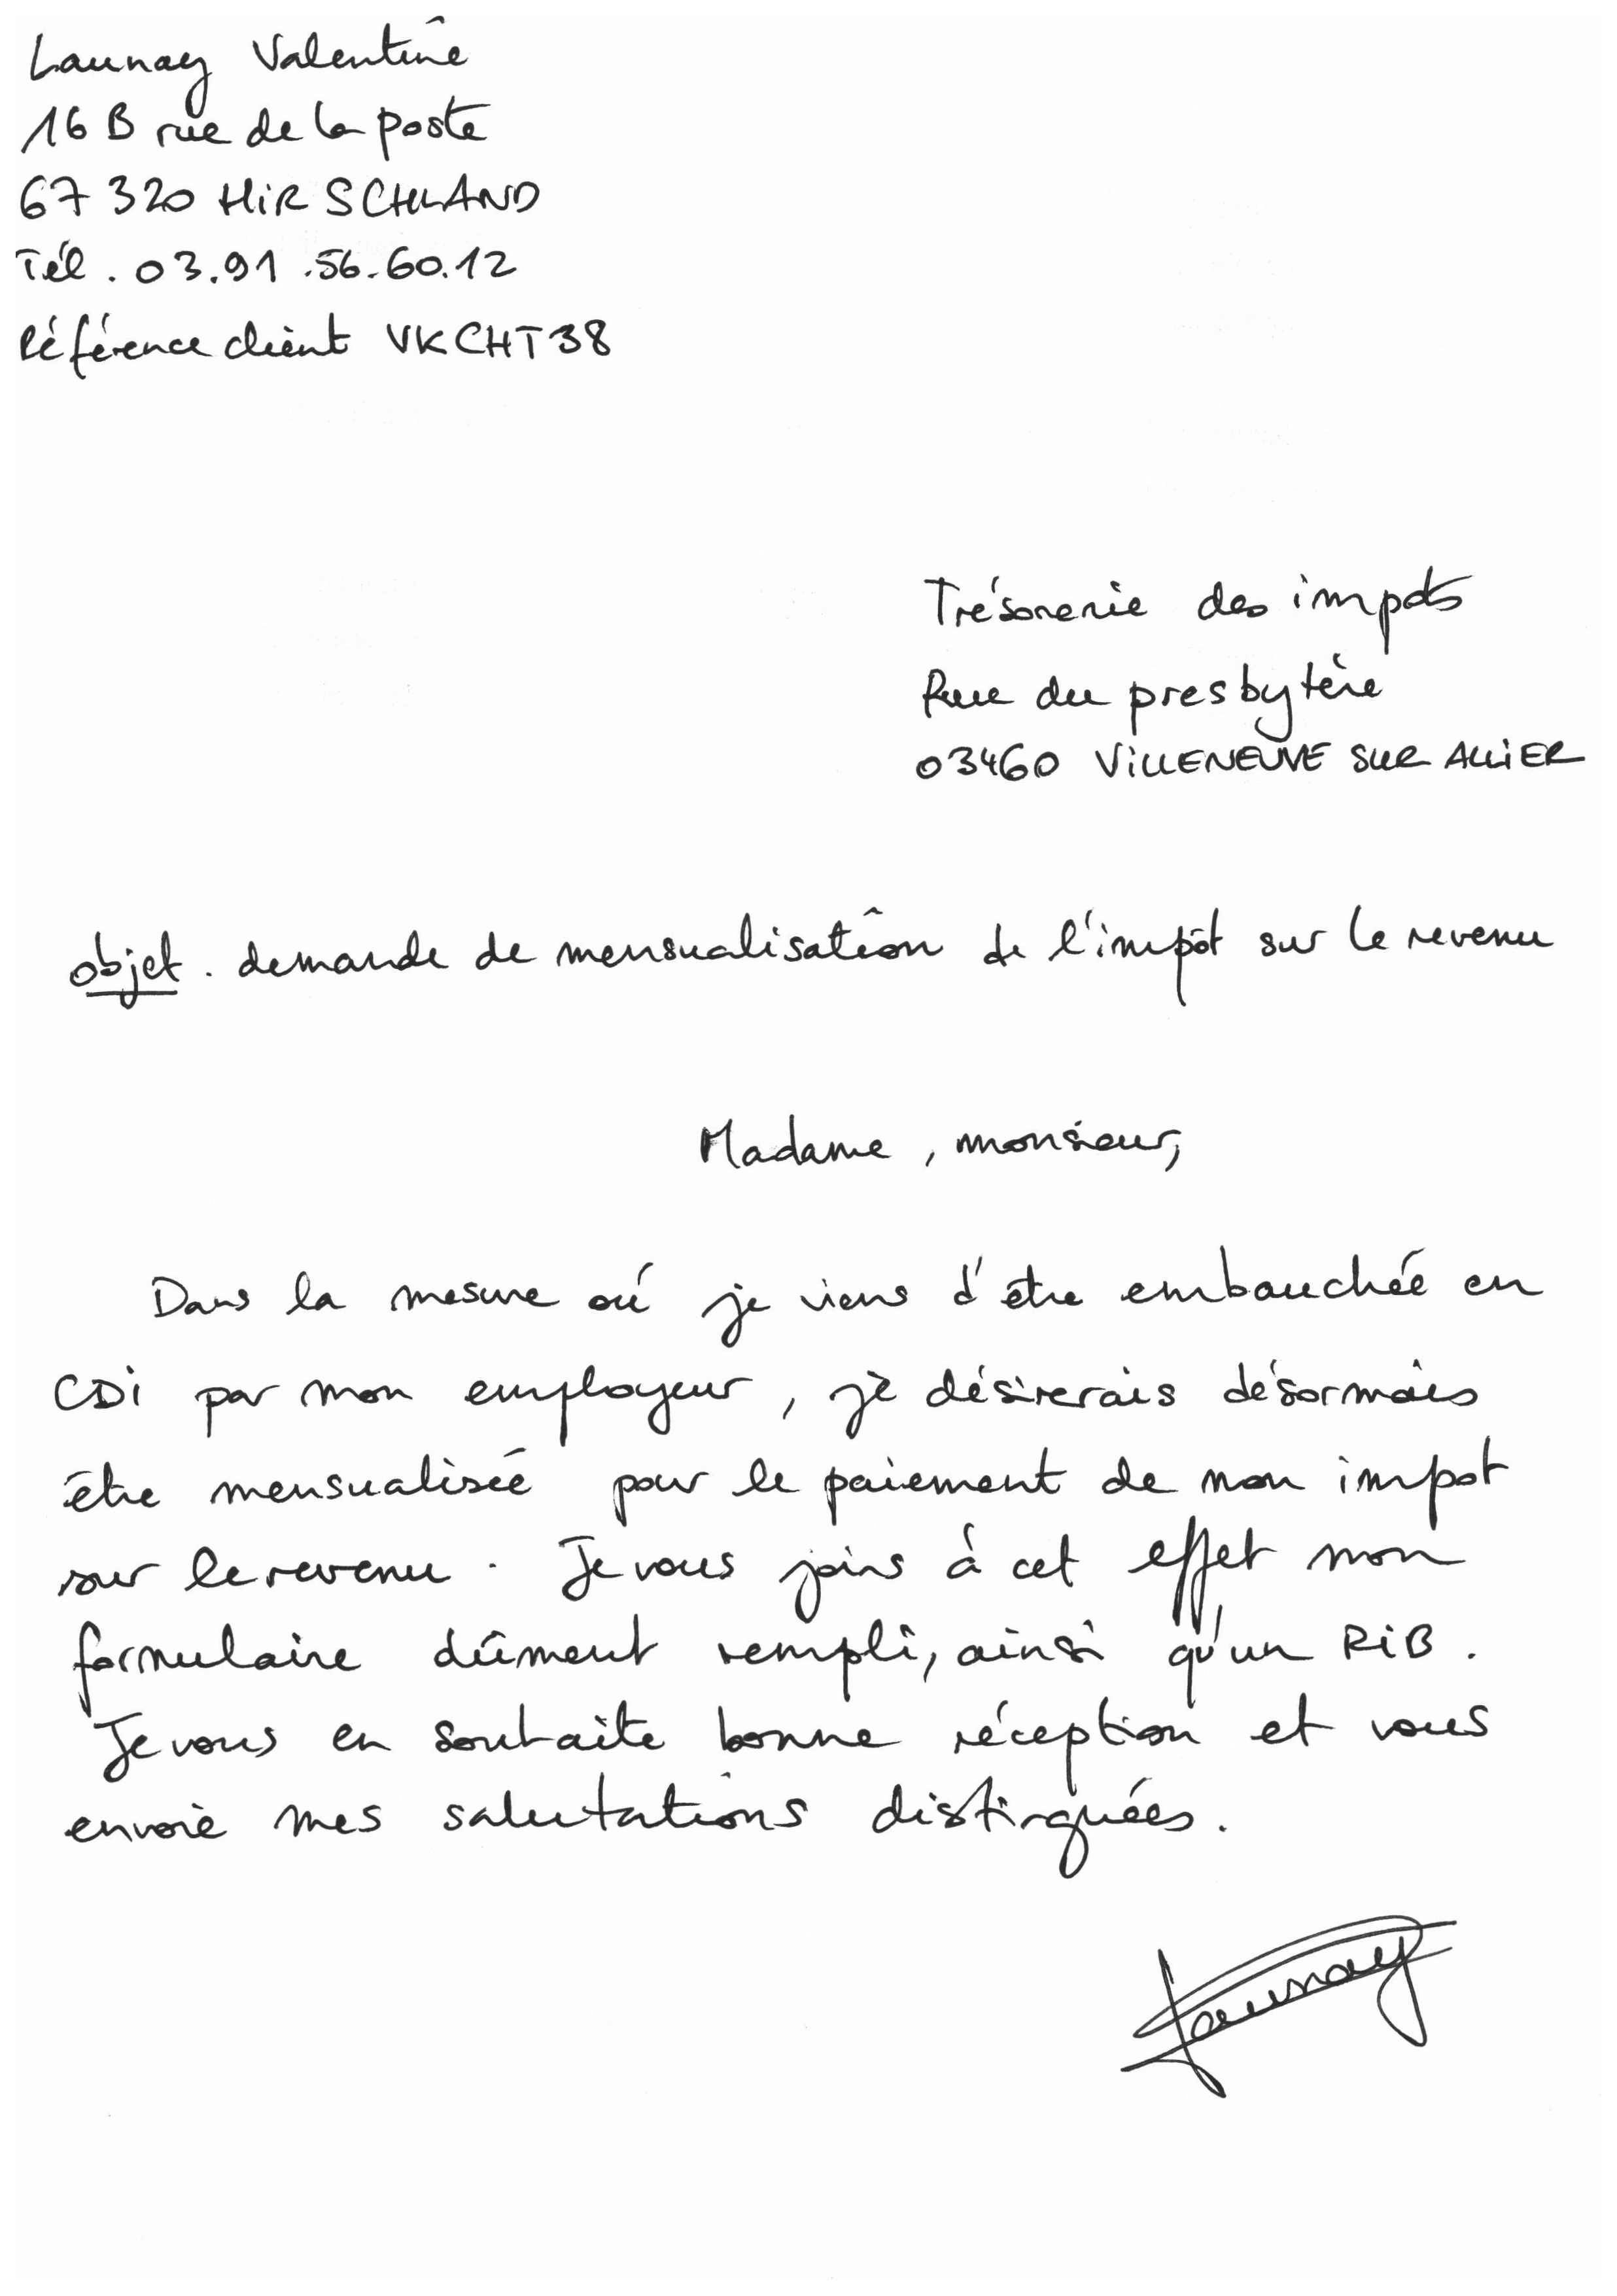 Launay Valentine
16 B rue de la poste
67320 HIRSCHLAND
Tél. 03.91.56.60.12
Référence client VKCHT38
Trésorerie des impots
Rue du presbytère
03460 VILLENEUVE SUR ALLIER
objet. demande de mensualisation de l'impôt sur le revenu
Madame, monsieur,
Dans la mesure où je viens d'être embauchée en
CDI par mon employeur, je désirerais désormais
être mensualisée pour le paiement de mon impot
sur le revenu. Je vous joins à cet effet mon
formulaire dûment rempli, ainsi qu'un RIB.
Je vous en souhaite bonne réception et vous
envoie mes salutations distinguées.
Launay